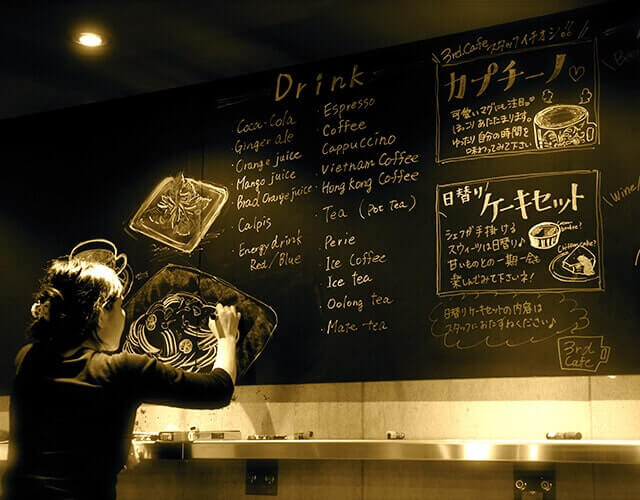 Drink
Coca-Cola
Ginger ale
Orange juice
Mango juice
Brad Orange juice
Calpis
Energy drink
Red/Blue
Espresso
Coffee
Cappuccino
Vietnam Coffee
Hong Kong Coffee
Tea (Pot tea)
Perie
Ice Coffee
Ice tea
Oolong tea
Mate tea
3rd.Cafe スタッフイチオシ
カプチーノ♡
可愛いマグにも注目。
ほっこりあたたまります。
ゆったり自分の時間を
味わってみて下さい
日替り
ケーキセット
シェフが手掛ける
スウィーツは日替り♪
甘いものとの一期一会も
楽しんでみて下さいネ!
日替りケーキセットの内容は
スタッフにおたずねください♪
3rd
Cafe
wine